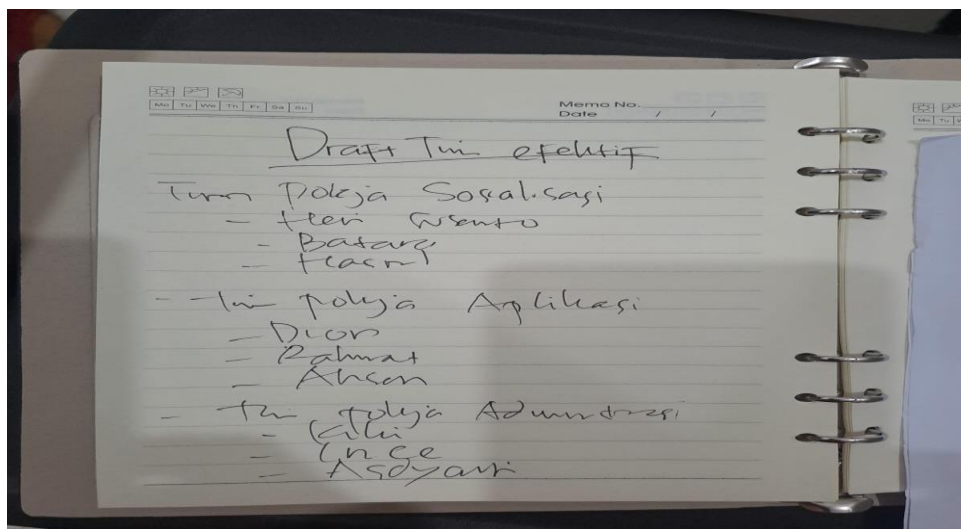 Mo Tu We Th Fr Sa Su
Memo No.
Date / /
Draft Tim efektif
Tim Pokja Sosialisasi
- Heri Susanto
- Batara
- Hasrul
- Tim Pokja Aplikasi
- Dion
- Rahmat
- Ahsan
- Tim Pokja Administrasi
- Kiki
- Ince
- Asdyanti
Mo Tu